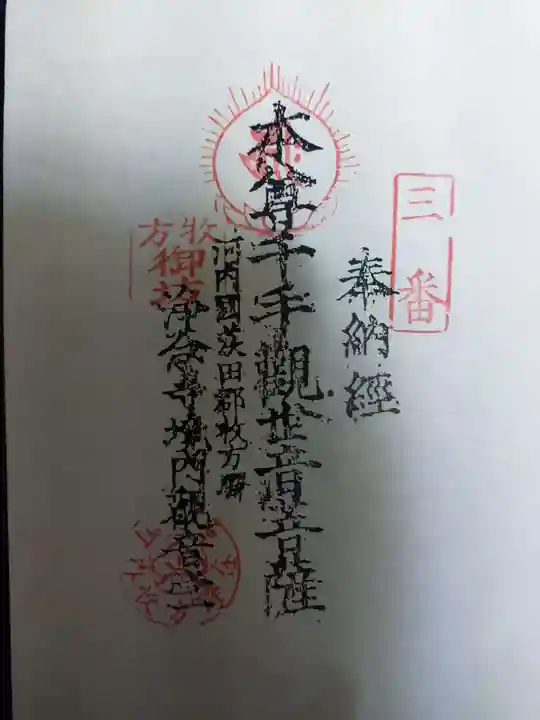 三番
奉納經
本尊千手觀世音菩薩
河内國茨田郡枚方驛
枚方
御坊
浄念寺境内觀音堂